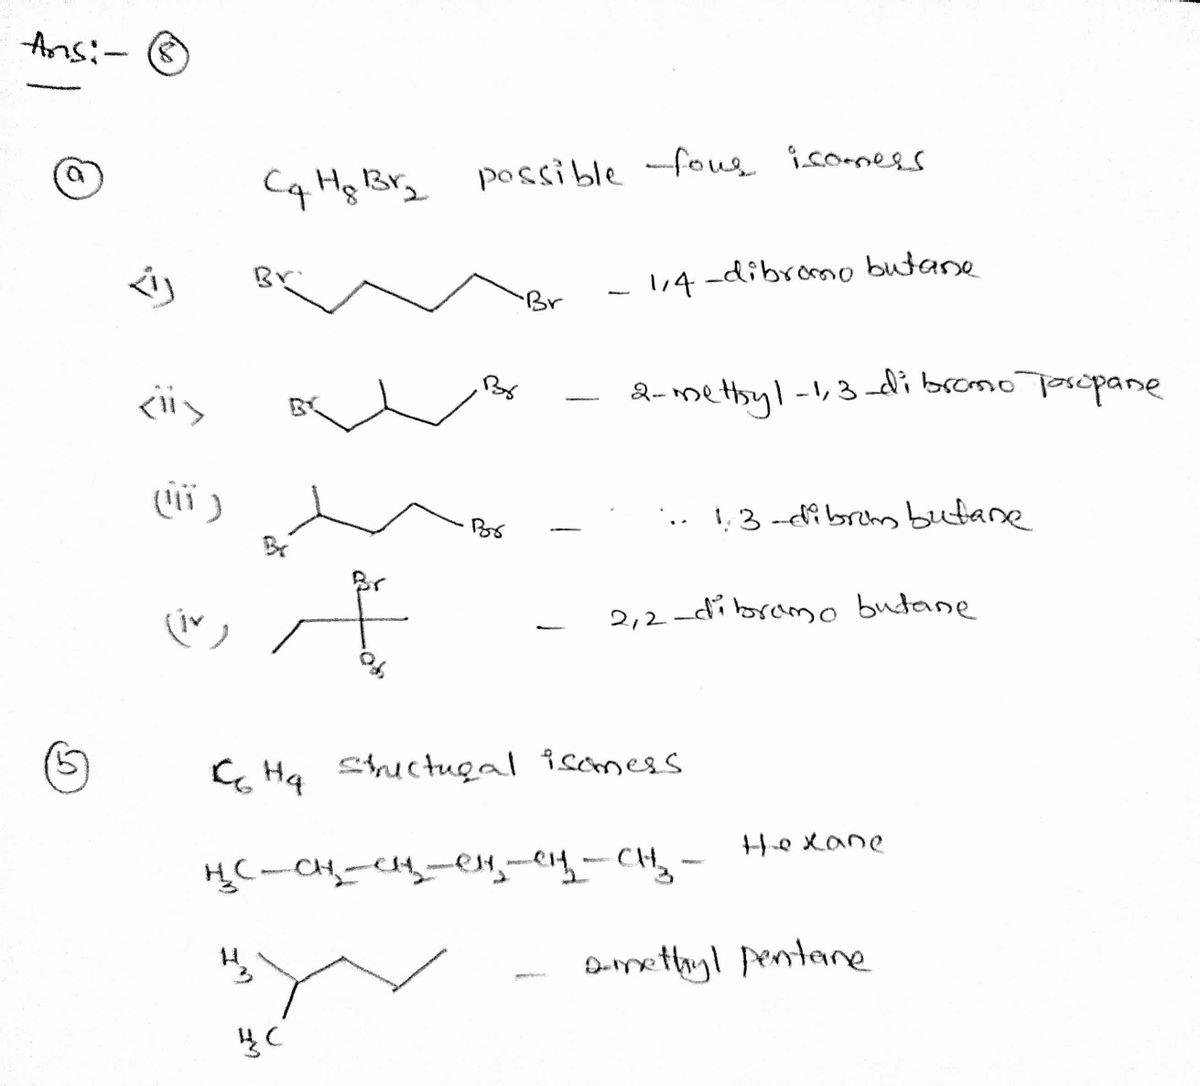 Ans:- ⑧
ⓐ C4H8Br2 possible four isomers
<i> Br Br - 1,4-dibromo butane
<ii> Br Br - 2-methyl-1,3-dibromo propane
(iii) Br Br - 1,3-dibromo butane
(iv) Br Br - 2,2-dibromo butane
ⓑ C6H4 structural isomers
H3C-CH2-CH2-CH2-CH2-CH3 - Hexane
H3 H3C - 2-methyl pentane